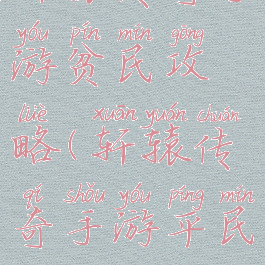 yóu pín mín gōng
游贫民攻
lüè xuān yuán chuán
略(轩辕传
qí shǒu yóu píng mín
奇手游平民